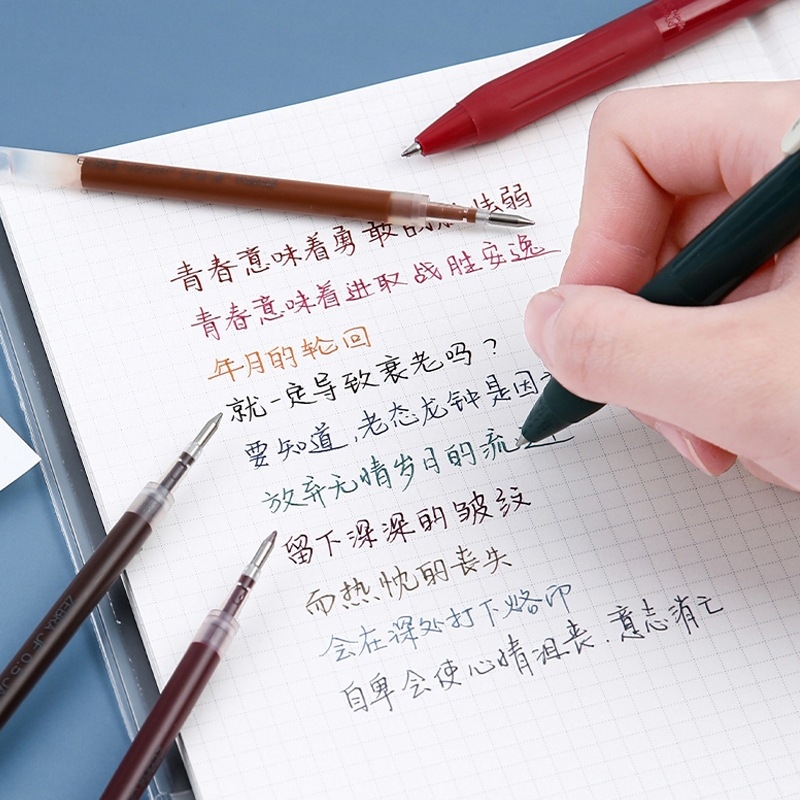 青春意味着勇敢的 怯弱
青春意味着进取战胜安逸
年月的轮回
就一定导致衰老吗？
要知道,老态龙钟是因
放弃无情岁日的流
留下深深的皱纹
而热忱的丧失
会在深处打下烙印
自卑会使心情沮丧.意志消亡
ZEBRA JF 0.5